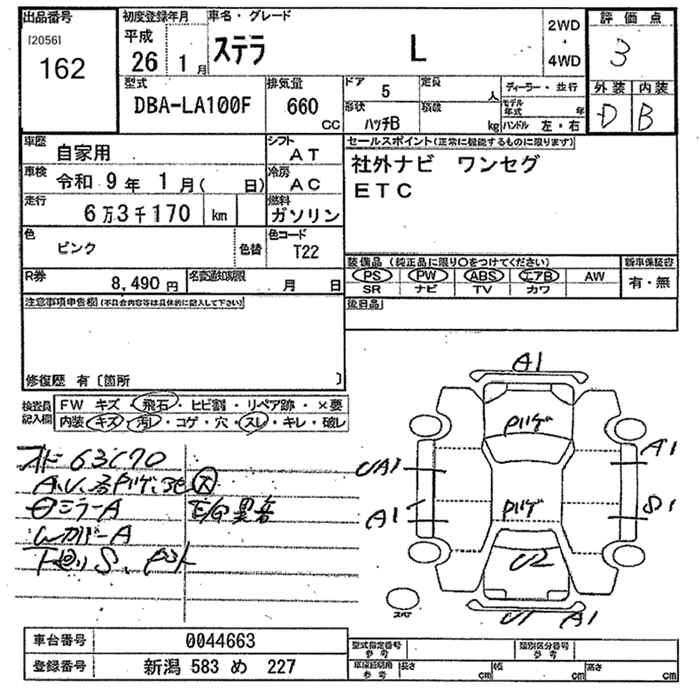 出品番号
[2056]
162
初度登録年月
平成
26 1月
車名・グレード
ステラ L
2WD
・
4WD
評価点
3
外装 内装
D B
型式
DBA-LA100F
排気量
660
CC
ドア 5
定員 人
形状
ハッチB
積載 kg
ディーラー・並行
モデル年式 年
ハンドル 左・右
車歴
自家用
シフト
AT
車検
令和 9年 1月( 日)
冷房
AC
走行
6万3千170 km
燃料
ガソリン
色
ピンク
色替
色コード
T22
R券
8,490 円
名変通知期限 月 日
セールスポイント(正常に機能するものに限ります)
社外ナビ ワンセグ
ETC
装備品 (純正品に限り〇をつけてください)
PS PW ABS エアB AW
SR ナビ TV カワ
新車保証書
有・無
後日品
注意事項申告欄(不具合内容等は具体的に記入して下さい)
修復歴 有〔箇所 〕
検査員記入欄
FW キズ・飛石・ヒビ割・リペア跡・×要
内装・キズ・汚レ・コゲ・穴・スレ・キレ・破レ
63170
ミラーA
E/G異音
カバーA
A1
UA1
A1
A1
S1
U2
U1 A1
スペア
車台番号 0044663
登録番号 新潟 583 め 227
型式指定番号
参考
類別区分番号
参考
車庫証明用
参考
長さ cm 幅 cm 高さ cm